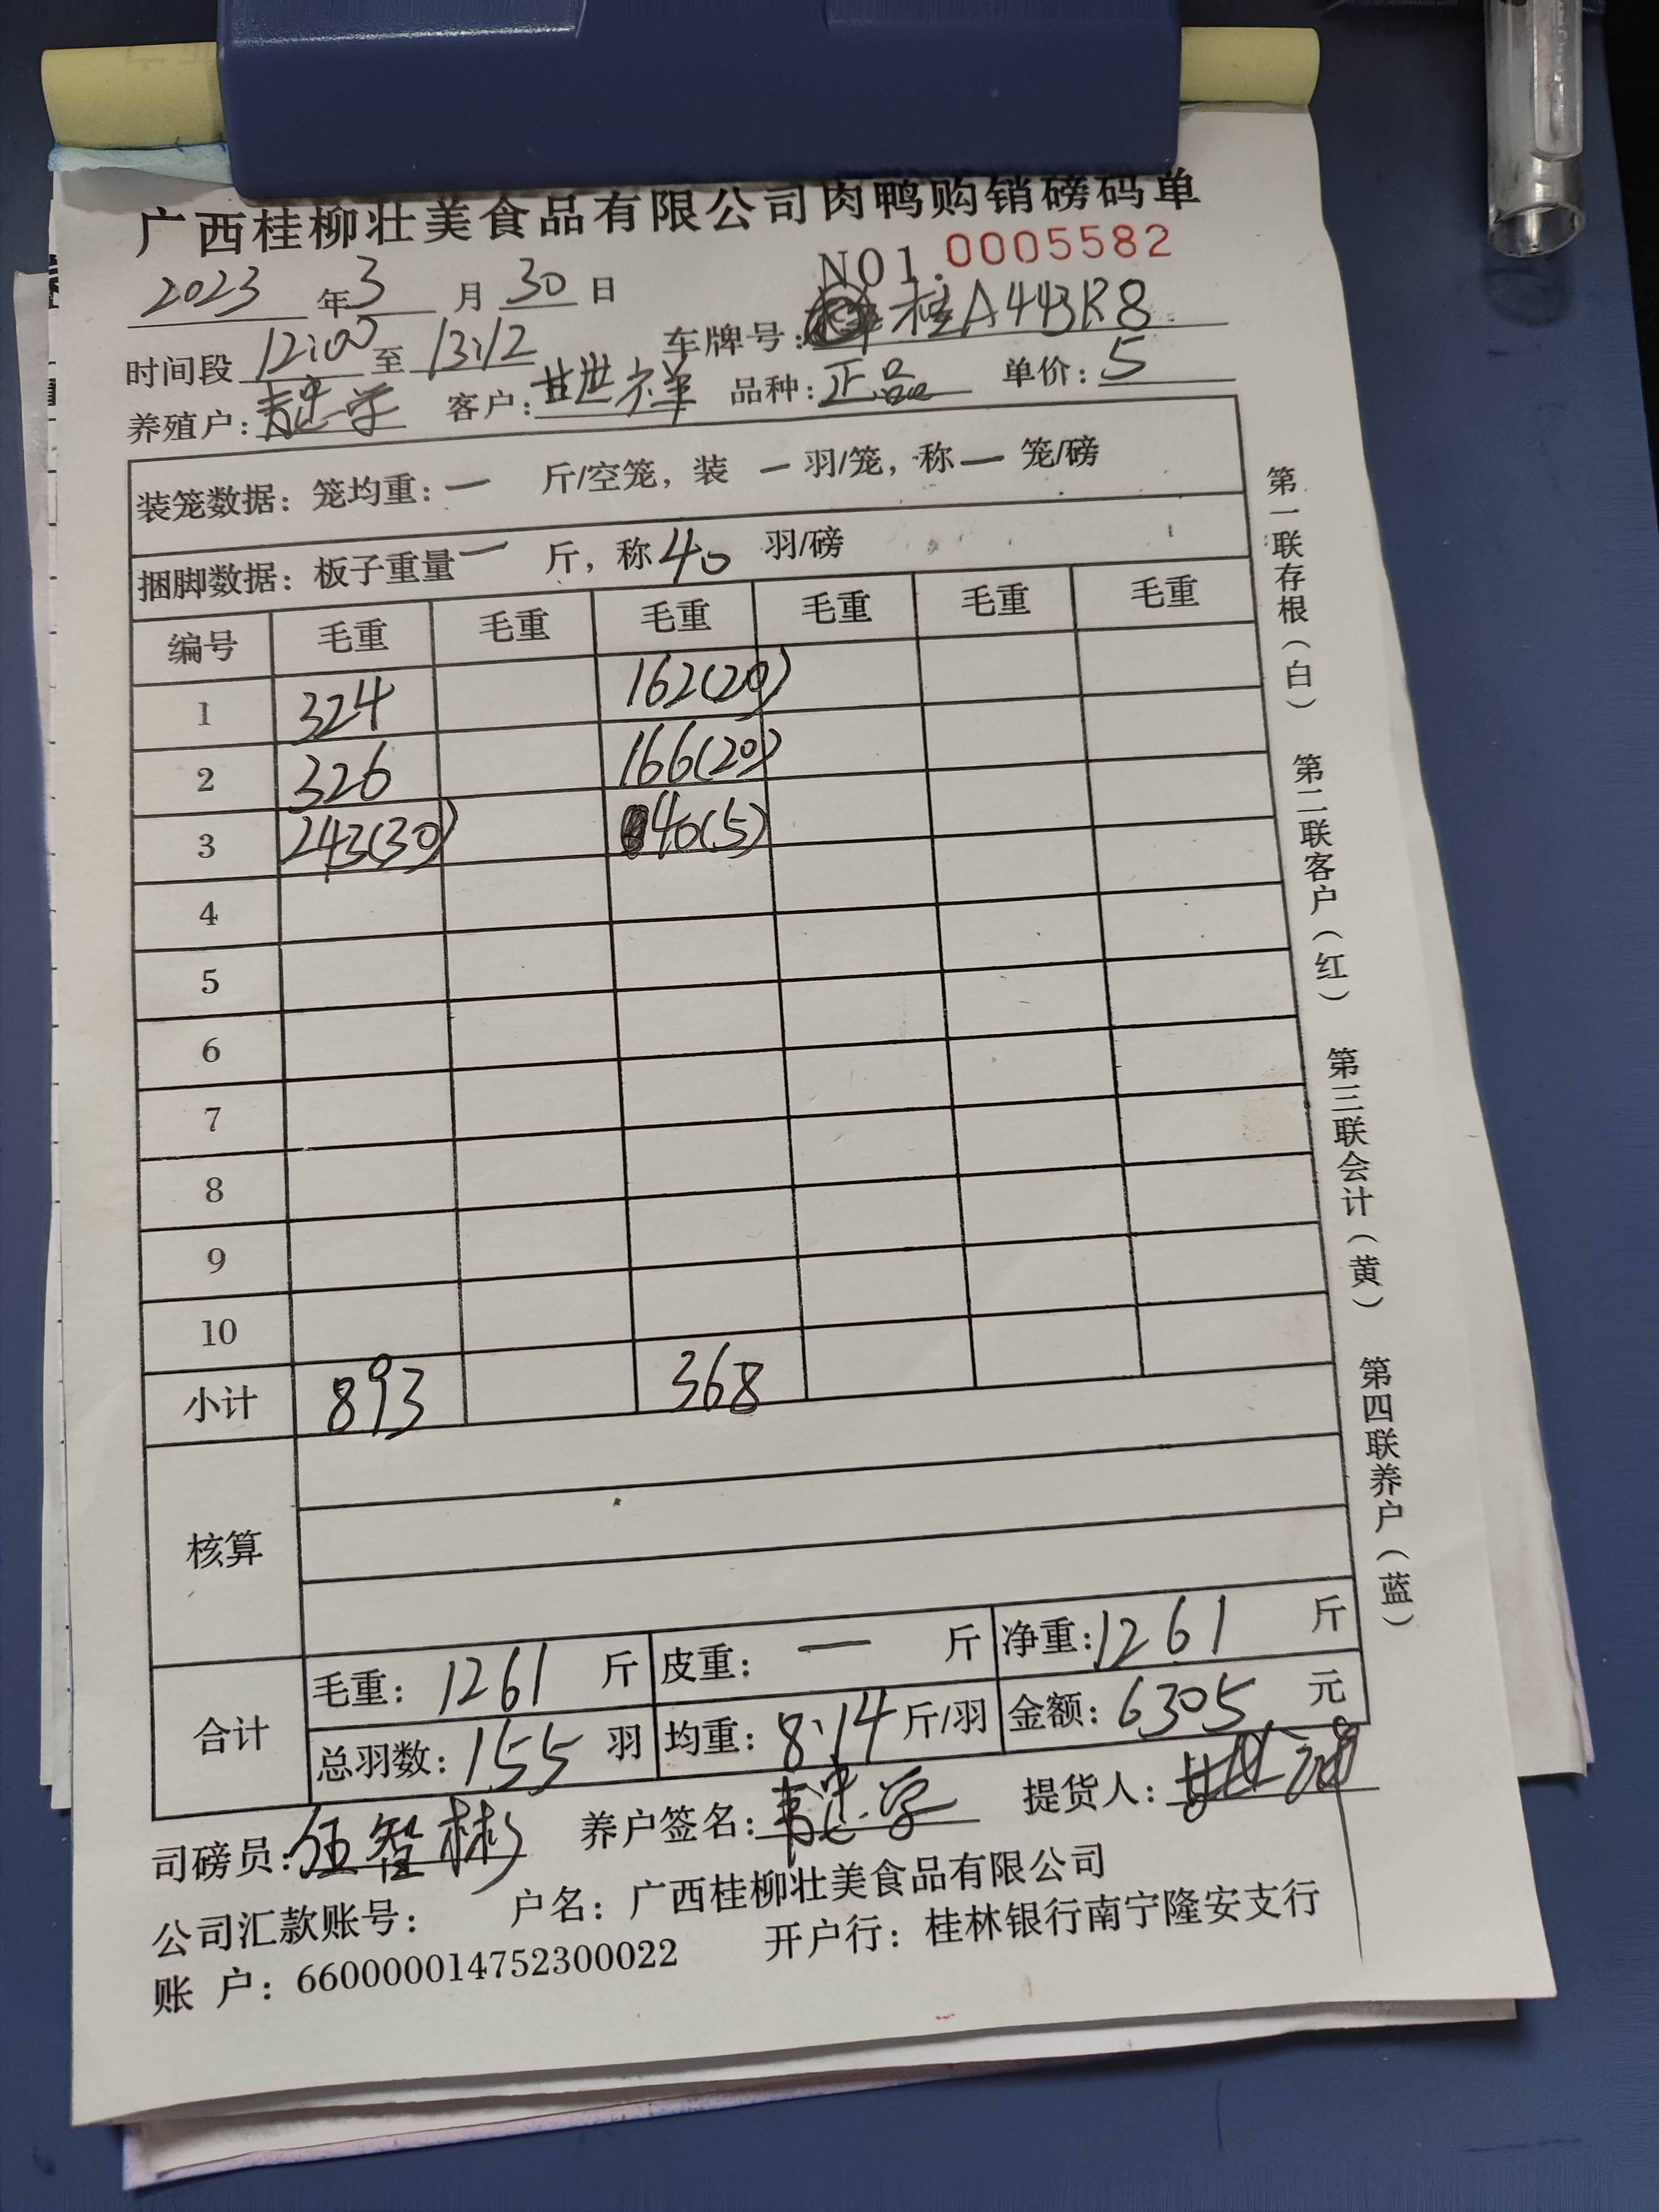 广西桂柳壮美食品有限公司肉鸭购销磅码单
NO1.0005582
2023年3月30日
时间段12:00至13:12 车牌号:桂A443K8
养殖户: 客户:甘世祥 品种:正品 单价:5
装笼数据:笼均重:一 斤/空笼,装 一羽/笼,称一 笼/磅
捆脚数据:板子重量一 斤,称40 羽/磅
编号 毛重 毛重 毛重 毛重 毛重 毛重
1 324 162(20)
2 326 166(20)
3 243(30) 40(5)
4
5
6
7
8
9
10
小计 893 368
核算
合计
毛重:1261 斤 皮重:一 斤 净重:1261 斤
总羽数:155 羽 均重:8.14斤/羽 金额:6305 元
司磅员:伍智彬 养户签名: 提货人:
公司汇款账号: 户名:广西桂柳壮美食品有限公司
账 户:660000014752300022 开户行:桂林银行南宁隆安支行
第一联存根(白) 第二联客户(红) 第三联会计(黄) 第四联养户(蓝)